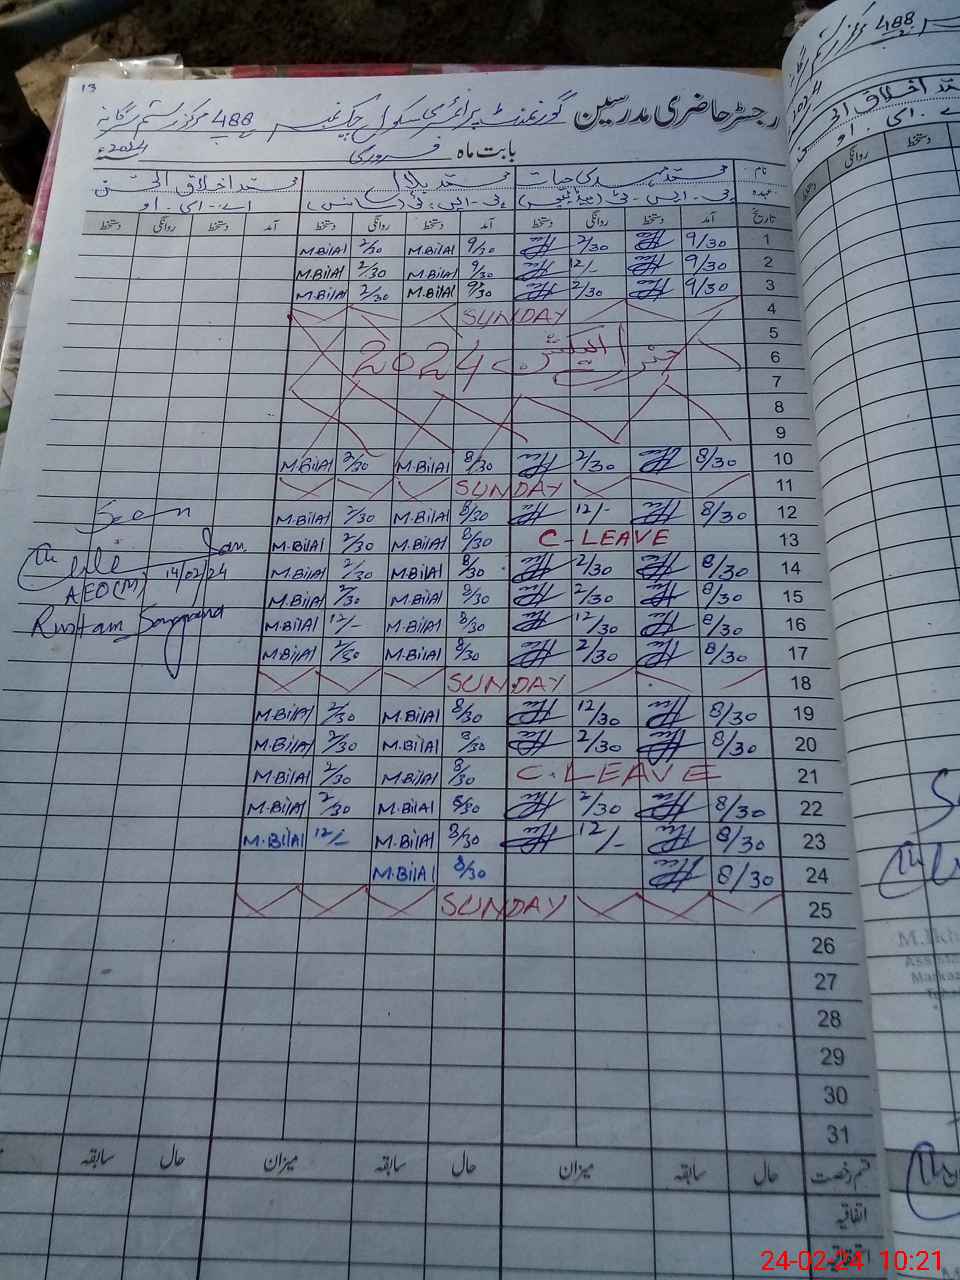 13
رجسٹر حاضری مدرسین گورنمنٹ پرائمری سکول چک نمبر 488 مرکز رستم سرگانہ
بابت ماہ فروری 2024ء
نام محمد مہدی حیات محمد بلال محمد اخلاق الحسن
عہدہ پی۔ایس۔ٹی پی۔ایس۔ٹی (سائنس) اے۔ای۔او
تاریخ آمد دستخط روانگی دستخط آمد دستخط روانگی دستخط آمد دستخط روانگی دستخط
M.Bilal 2/30 M.Bilal 9/30 2/30 9/30 1
M.Bilal 2/30 M.Bilal 9/30 12/- 9/30 2
M.Bilal 2/30 M.Bilal 9/30 2/30 9/30 3
SUNDAY 4
5
جنرل الیکشن 2024 6
7
8
9
M.Bilal 2/30 M.Bilal 8/30 2/30 8/30 10
SUNDAY 11
Seen M.Bilal 2/30 M.Bilal 8/30 12/- 8/30 12
M.Bilal 2/30 M.Bilal 8/30 C-LEAVE 13
AEO(M) 14/02/24 M.Bilal 2/30 M.Bilal 8/30 2/30 8/30 14
M.Bilal 2/30 M.Bilal 8/30 2/30 8/30 15
Rustam Sargana M.Bilal 12/- M.Bilal 8/30 12/30 8/30 16
M.Bilal 2/30 M.Bilal 8/30 2/30 8/30 17
SUNDAY 18
M.Bilal 2/30 M.Bilal 8/30 12/30 8/30 19
M.Bilal 2/30 M.Bilal 8/30 2/30 8/30 20
M.Bilal 2/30 M.Bilal 8/30 C.LEAVE 21
M.Bilal 2/30 M.Bilal 8/30 2/30 8/30 22
M.Bilal 12/- M.Bilal 8/30 12/- 8/30 23
M.Bilal 8/30 8/30 24
SUNDAY 25
26
27
28
29
30
31
قسم رخصت حال سابقہ میزان حال سابقہ میزان حال سابقہ
اتفاقیہ
24-02-24 10:21